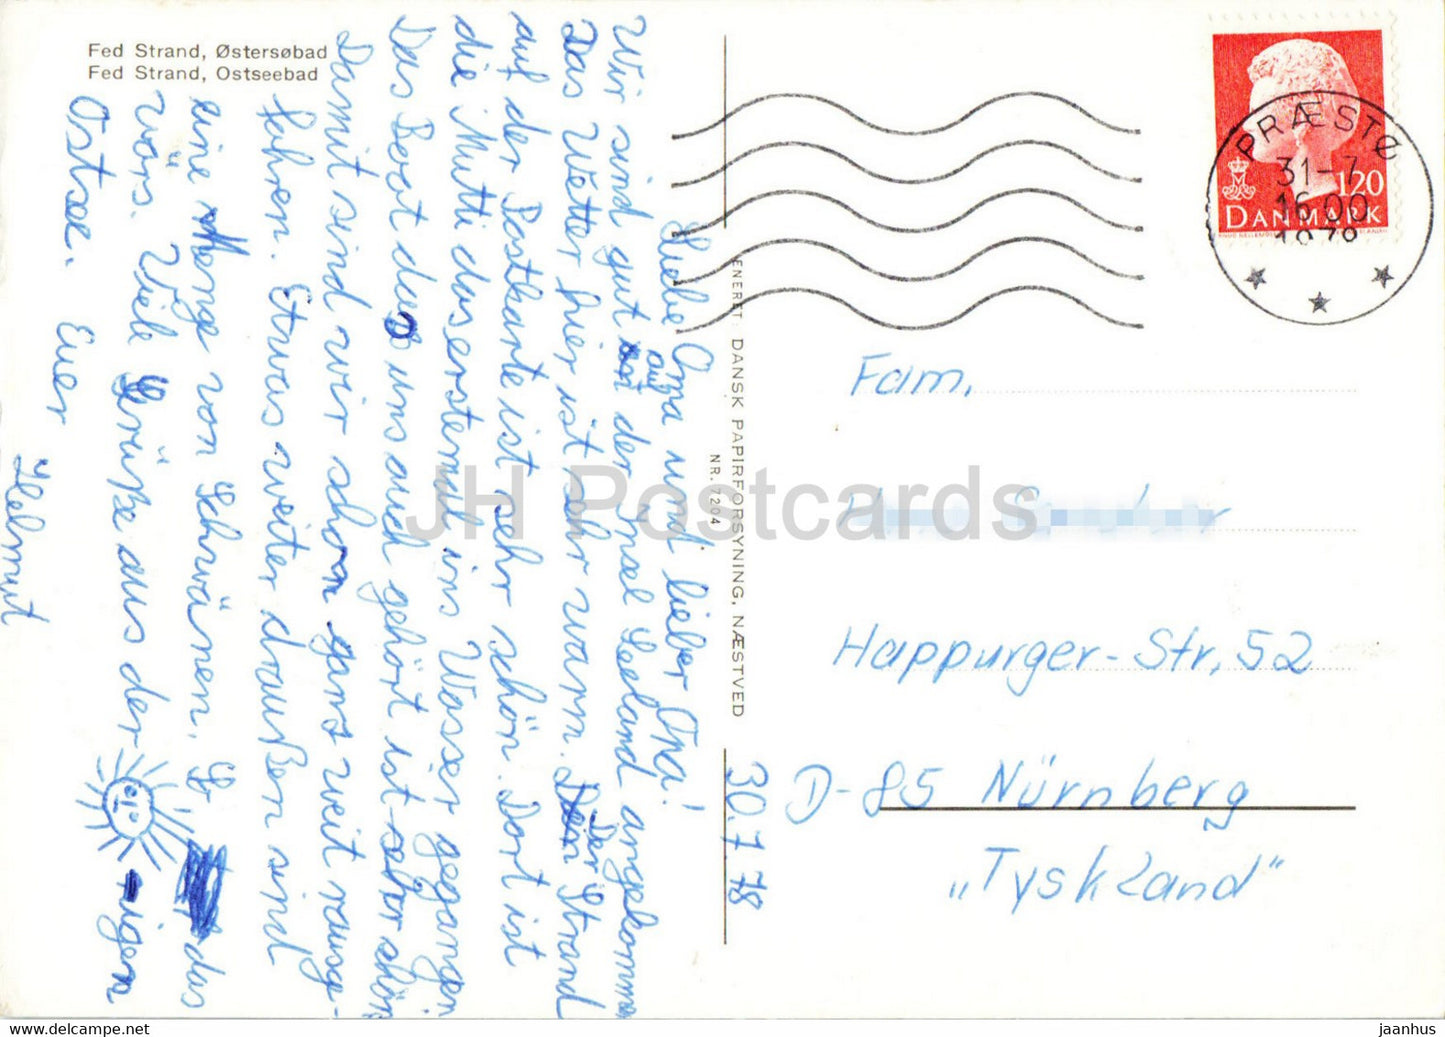 Fed Strand, Østersøbad
Fed Strand, Ostseebad
30.7.78
Liebe Oma und lieber Opa!
Wir sind gut auf der Insel Seeland angekommen
Das Wetter hier ist sehr warm. Der Strand
auf der Postkarte ist sehr schön. Dort ist
die Mutti das erstemal ins Wasser gegangen
Das Boot das uns auch gehört ist sehr schön
Damit sind wir schon ganz weit rausge-
fahren. Etwas weiter draußen sind
eine Menge von Schwänen. das
wärs. Viele Grüße aus der igen
Ostsee. Euer
Helmut
ENERET: DANSK PAPIRFORSYNING, NÆSTVED
NR. 7204
PRÆSTØ
31-7
16.00
1978
120
DANMARK
Fam.
Happurger-Str. 52
D-85 Nürnberg
„Tyskland"
JH Postcards
www.delcampe.net
jaanhus